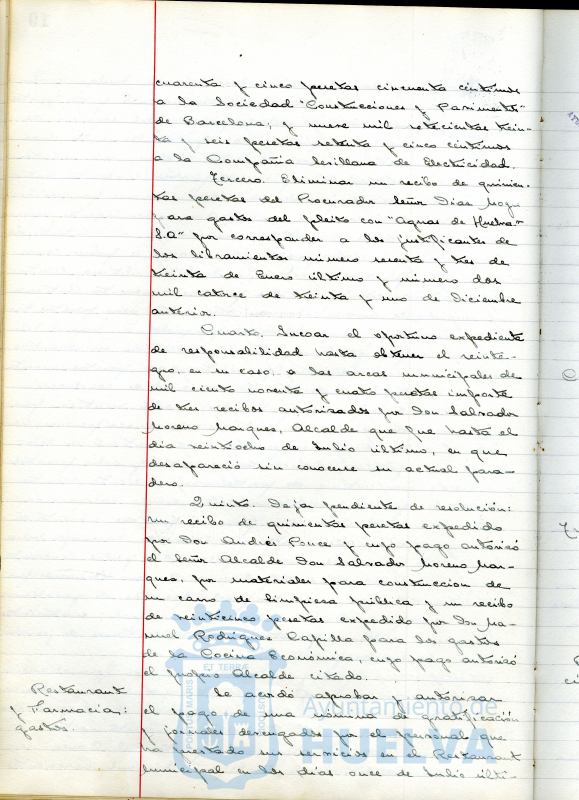 cuarenta y cinco pesetas cincuenta céntimos
a la Sociedad "Construcciones y Pavimentos"
de Barcelona; y nueve mil setecientas trein-
ta y seis pesetas setenta y cinco céntimos
a la Compañia Sevillana de Electricidad.
Tercero. Eliminar un recibo de quinien-
tas pesetas del Procurador Señor Dias
para gastos del pleito con "Aguas de Huelva
S.A" por corresponder a los justificantes de
los libramientos número sesenta y tres de
treinta de Enero último y número dos
mil catorce de treinta y uno de Diciembre
anterior.
Cuarto. Incoar el oportuno expediente
de responsabilidad hasta obtener el reinte-
gro, en su caso, a las arcas municipales de
mil ciento noventa y cuatro pesetas importe
de tres recibos autorizados por Don Salvador
Moreno Marques, Alcalde que fue hasta el
dia veintiocho de Julio último, en que
desapareció sin conocerse su actual para-
dero.
Quinto. Dejar pendiente de resolución:
un recibo de quinientas pesetas expedido
por Don Andrés Ponce y cuyo pago autorizó
el Señor Alcalde Don Salvador Moreno Mar-
ques, por materiales para construccion de
un carro de limpieza pública y un recibo
de veinticinco pesetas expedido por Don Ma-
nuel Rodrigues Capilla para los gastos
de la Cocina Económica, cuyo pago autorizó
el propio Alcalde citado.
Restaurant
y Farmacia:
gastos.
Se acordó aprobar y autorizar
el pago de una nómina de gratificación
y jornales devengados por el personal que
ha prestado sus servicios en el Restaurant
municipal en los dias once de Julio últi-
Ayuntamiento de
HUELVA